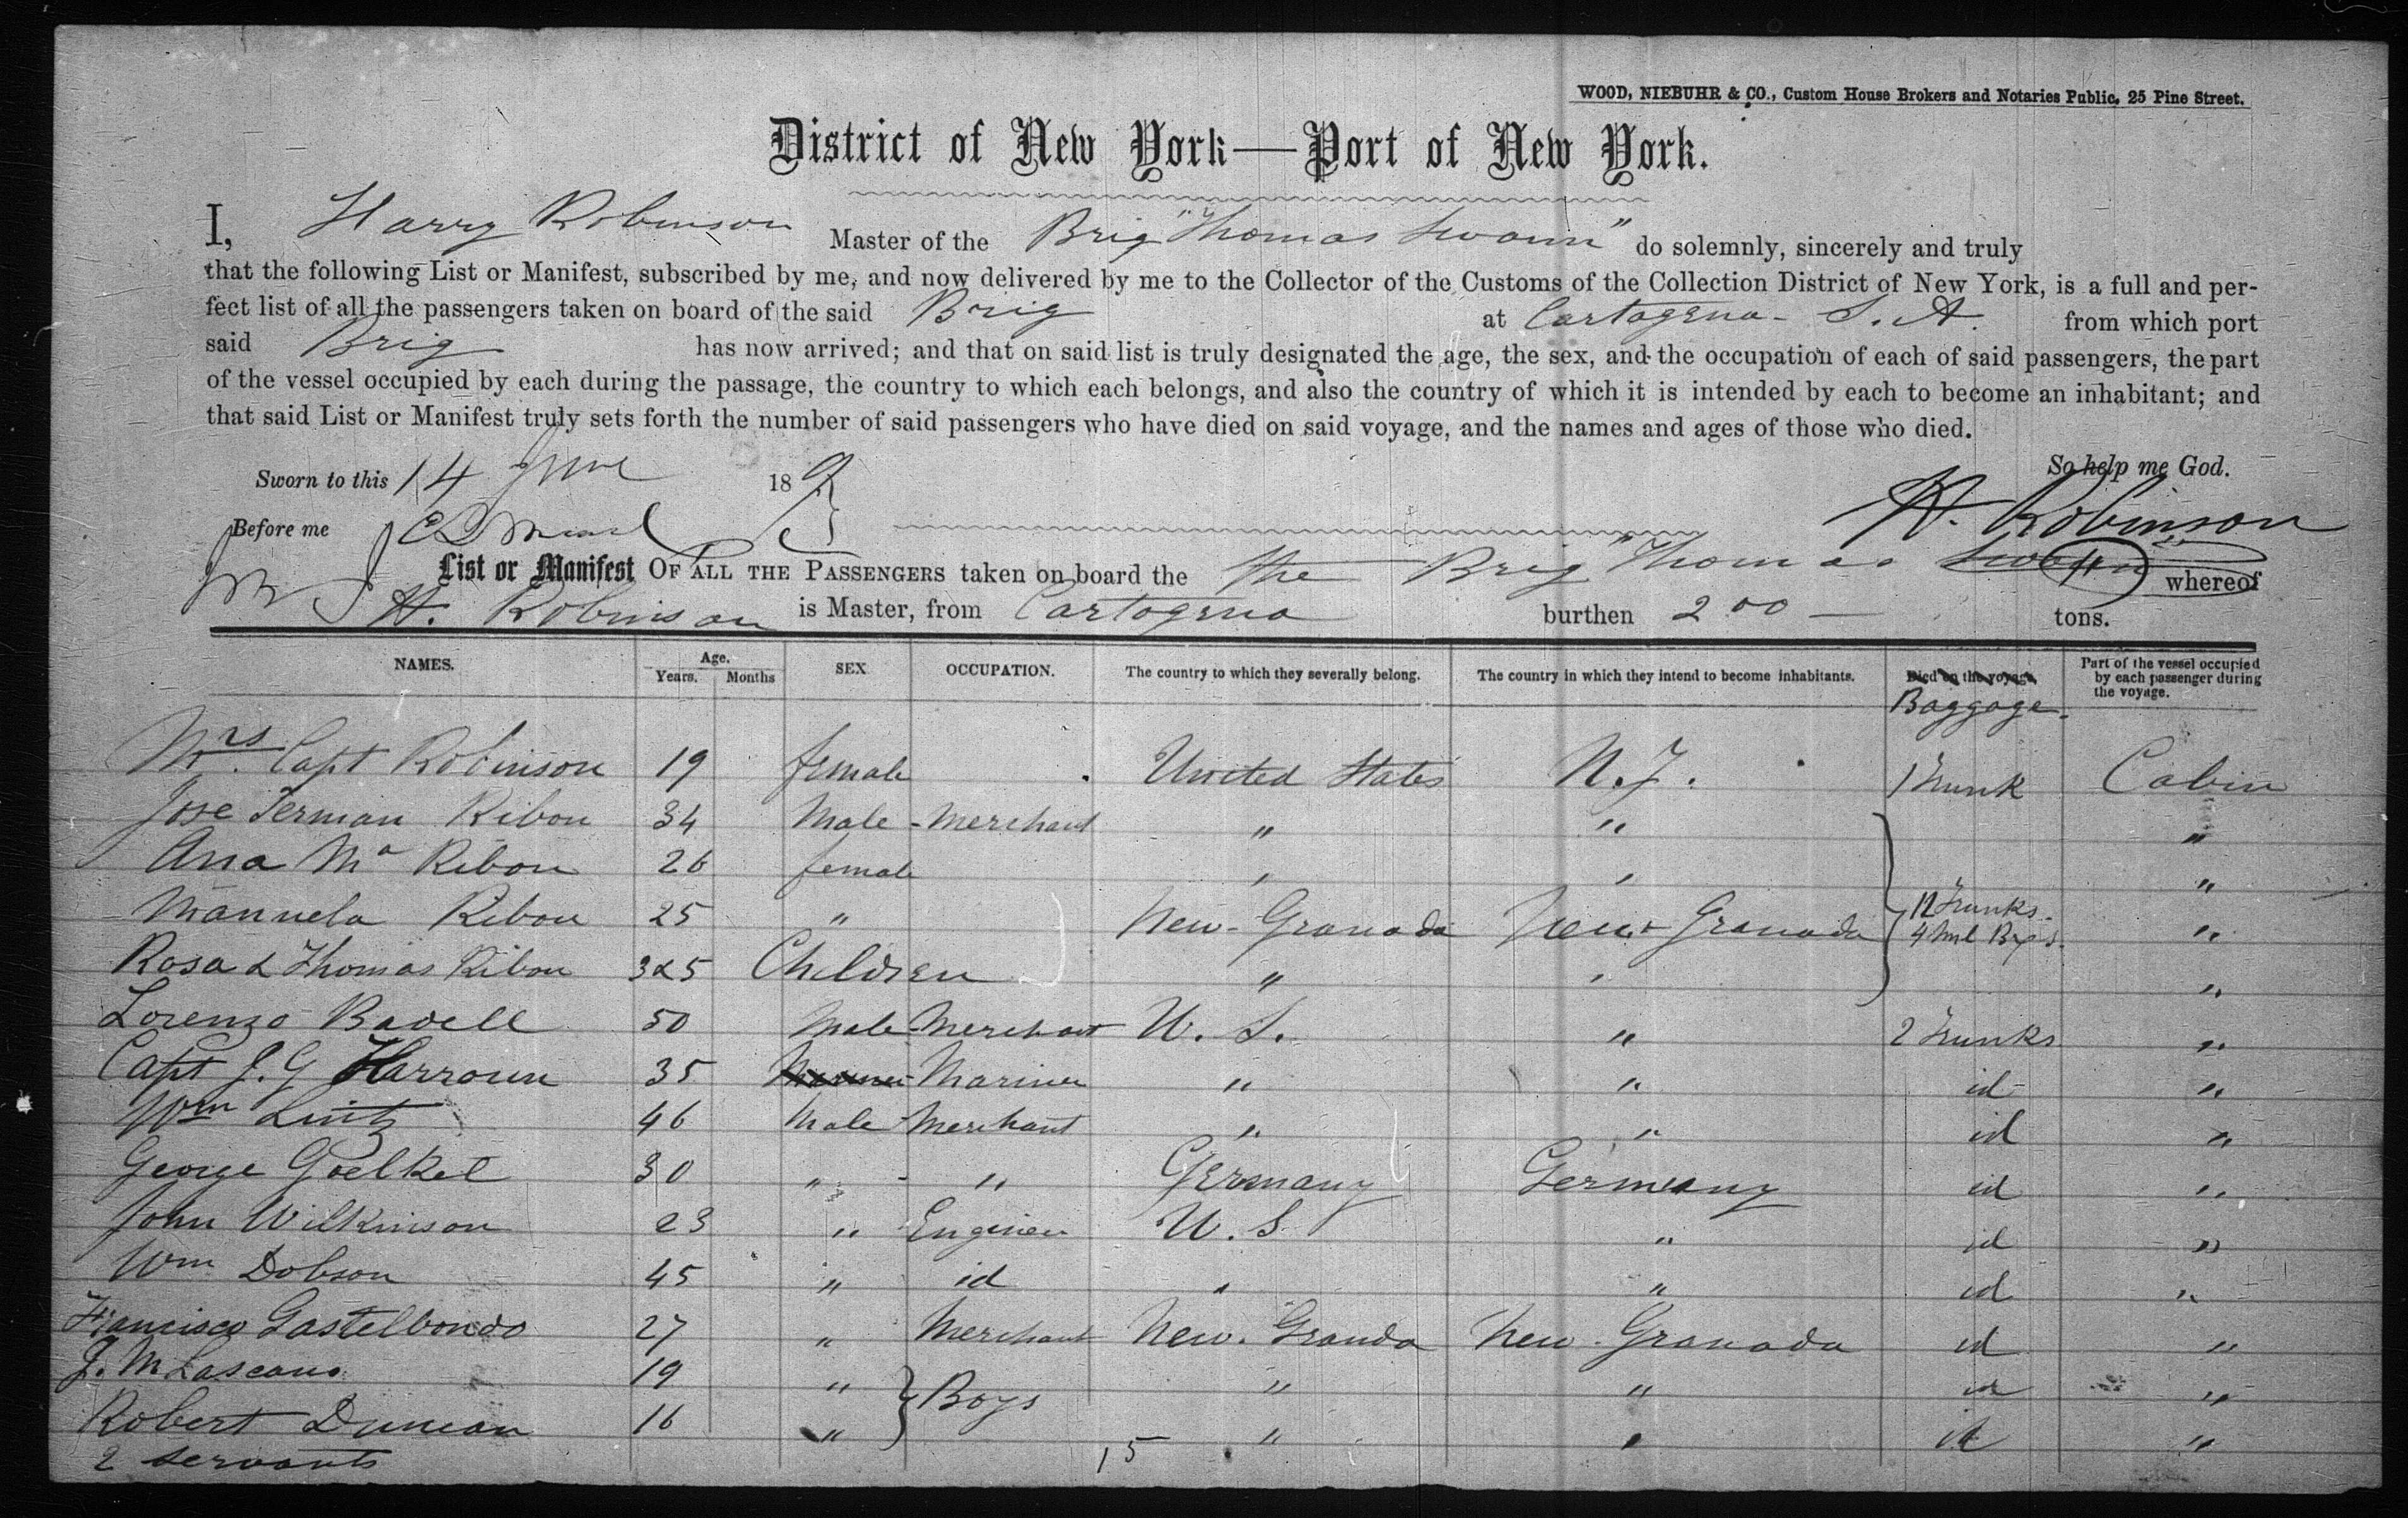 WOOD, NIEBUHR & CO., Custom House Brokers and Notaries Public, 25 Pine Street.
District of New York—Port of New York.
I, Harry Robinson Master of the Brig "Thomas Swann" do solemnly, sincerely and truly
that the following List or Manifest, subscribed by me, and now delivered by me to the Collector of the Customs of the Collection District of New York, is a full and per-
fect list of all the passengers taken on board of the said Brig at Cartagena - S. A. from which port
said Brig has now arrived; and that on said list is truly designated the age, the sex, and the occupation of each of said passengers, the part
of the vessel occupied by each during the passage, the country to which each belongs, and also the country of which it is intended by each to become an inhabitant; and
that said List or Manifest truly sets forth the number of said passengers who have died on said voyage, and the names and ages of those who died.
So help me God.
Sworn to this 14 June 189
Before me
H. Robinson
List or Manifest OF ALL THE PASSENGERS taken on board the the Brig "Thomas Swann" whereof
H. Robinson is Master, from Cartagena burthen 200 — tons.
NAMES. Age. Years. Months SEX OCCUPATION. The country to which they severally belong. The country in which they intend to become inhabitants. Died on the voyage. Part of the vessel occupied by each passenger during the voyage.
Baggage.
Mrs. Capt Robinson 19 female United States N.J. 1 Trunk Cabin
Jose German Ribon 34 Male - Merchant " " "
Ana Ma Ribon 26 female " " "
Manuela Ribon 25 " New-Granada New Granada 12 Trunks. "
4 Bxs.
Rosa & Thomas Ribon 3&5 Children " " "
Lorenzo Badell 50 Male - Merchant U. S. " 2 Trunks "
Capt J. G Harroun 35 Mariner Mariner " " id "
Wm Lintz 46 Male Merchant " " id "
George Goelkel 30 " - " Germany Germany id "
John Wilkinson 23 " Engineer U. S " id "
Wm Dobson 45 " id " " id "
Francisco Gastelbondo 27 " Merchant New. Granda New Granada id "
J. M Lascano 19 " Boys " " id "
Robert Duncan 16 " " " id "
2 servants 15